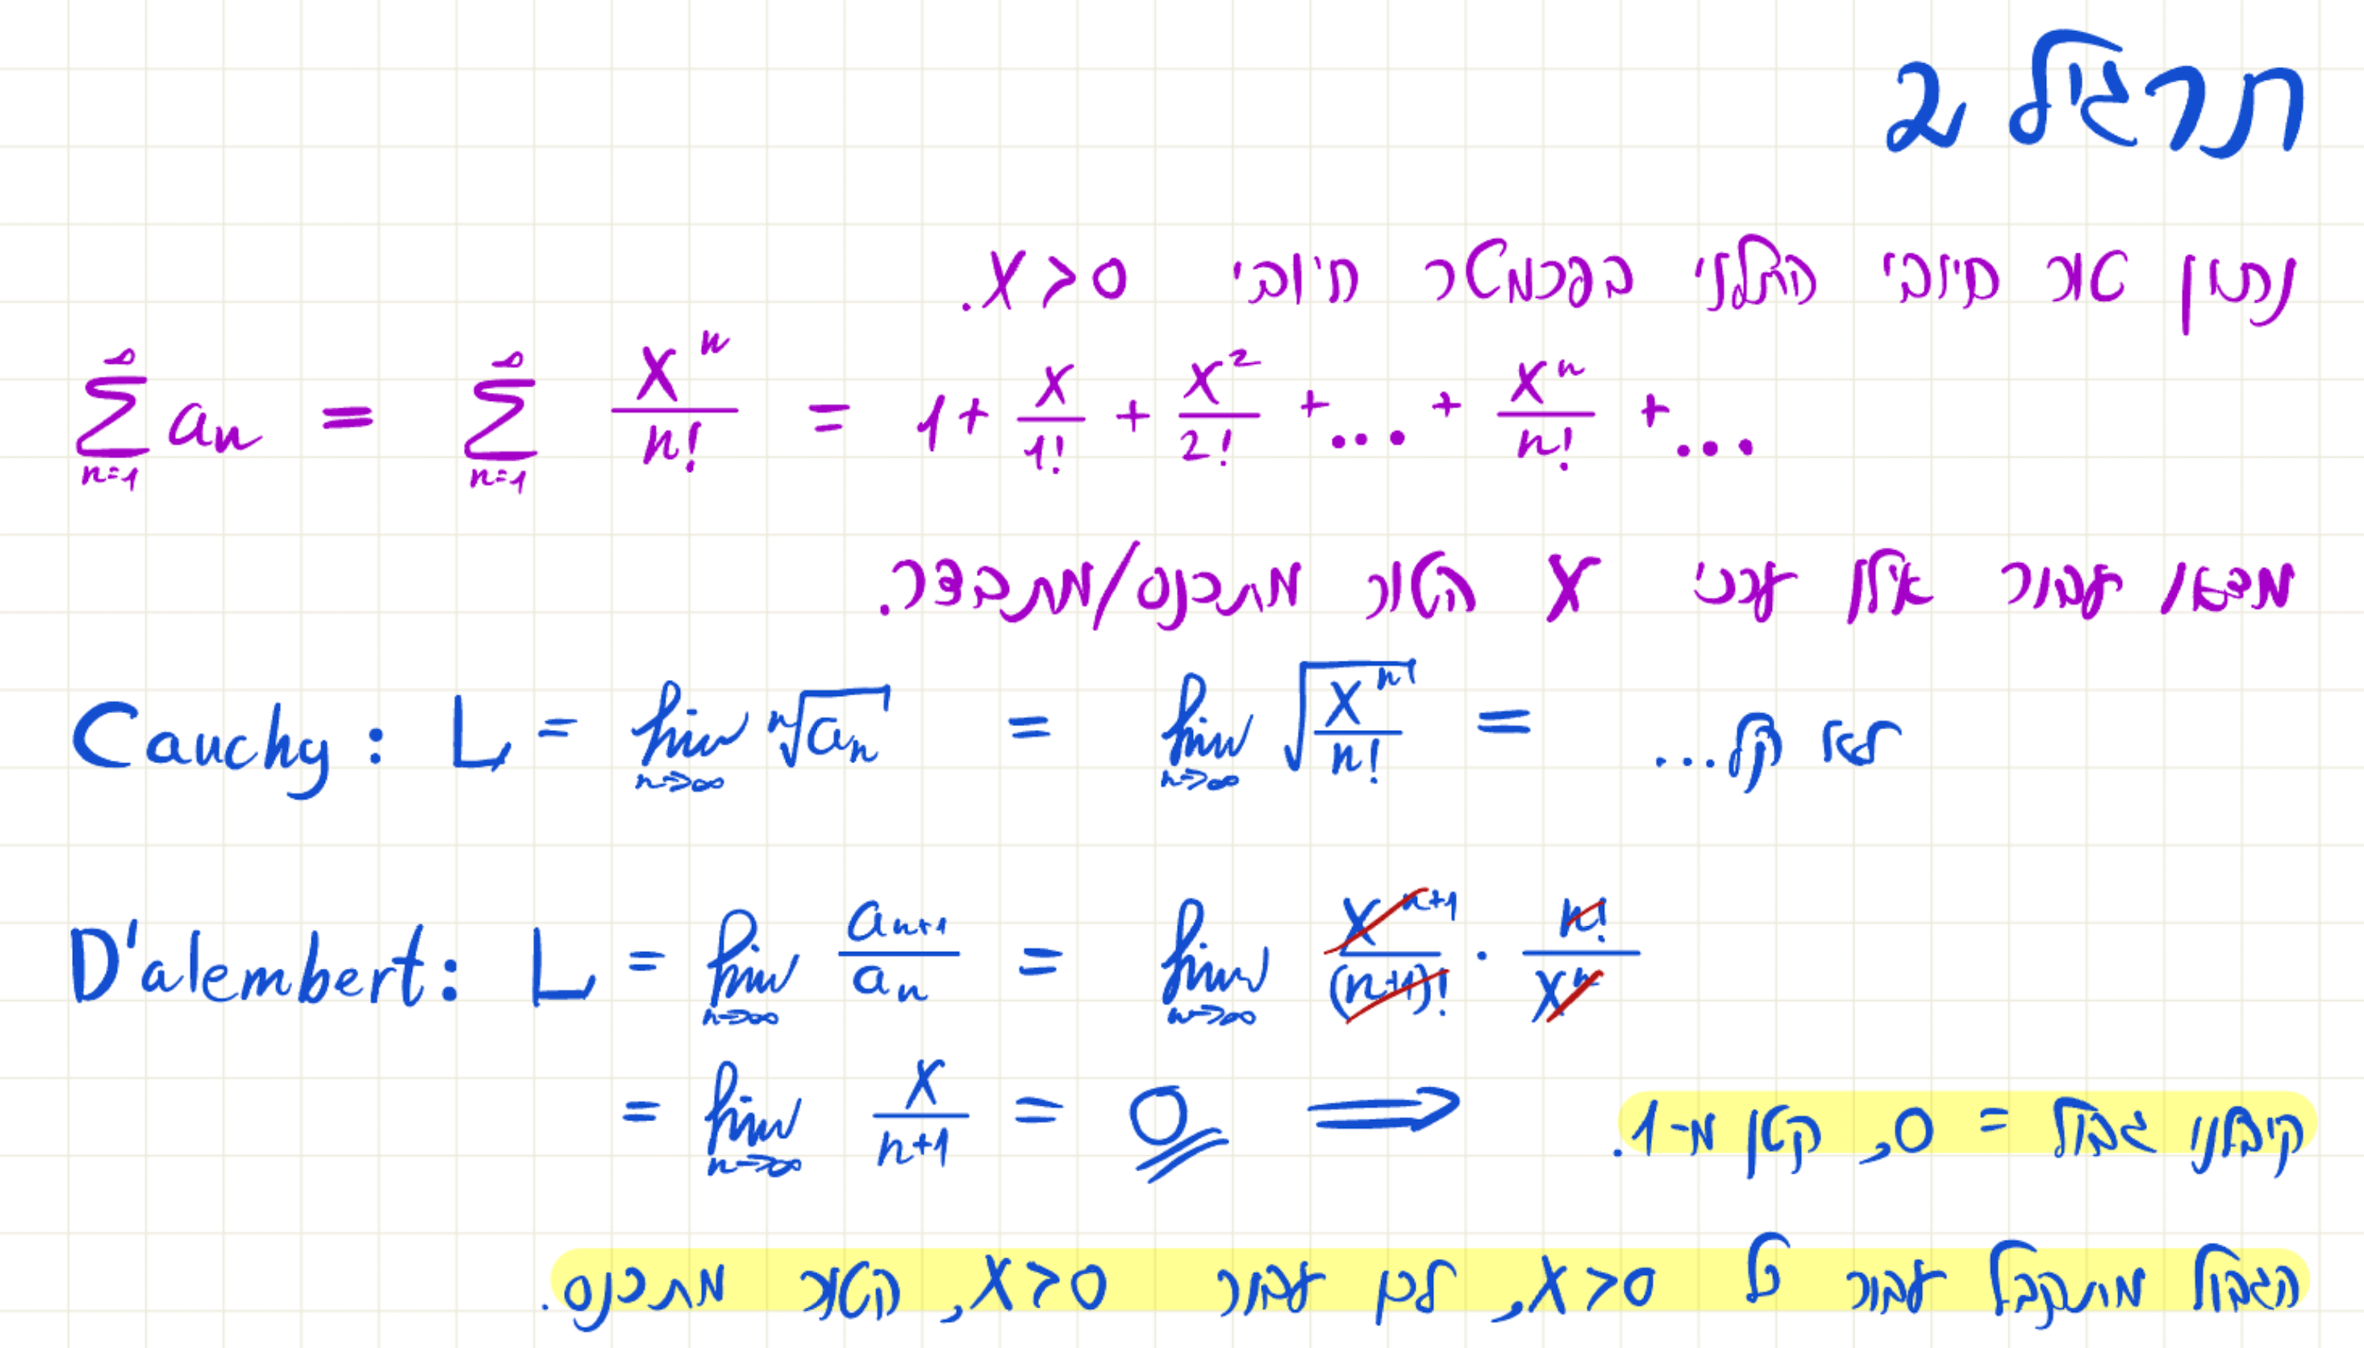 תרגיל 2
נתון טור חיובי התלוי בפרמטר חיובי x>0.
∑_{n=1}^{∞} a_n = ∑_{n=1}^{∞} x^n/n! = 1 + x/1! + x^2/2! + ... + x^n/n! + ...
מצאו עבור אילו ערכי x הטור מתכנס/מתבדר.
Cauchy: L = lim_{n→∞} ⁿ√a_n = lim_{n→∞} √(x^n/n!) = לא קל...
D'alembert: L = lim_{n→∞} a_{n+1}/a_n = lim_{n→∞} x^{n+1}/(n+1)! · n!/x^n
= lim_{n→∞} x/(n+1) = 0 ⟹ קיבלנו גבול = 0, קטן מ-1.
הגבול מתקבל עבור כל x>0, לכן עבור x>0, הטור מתכנס.